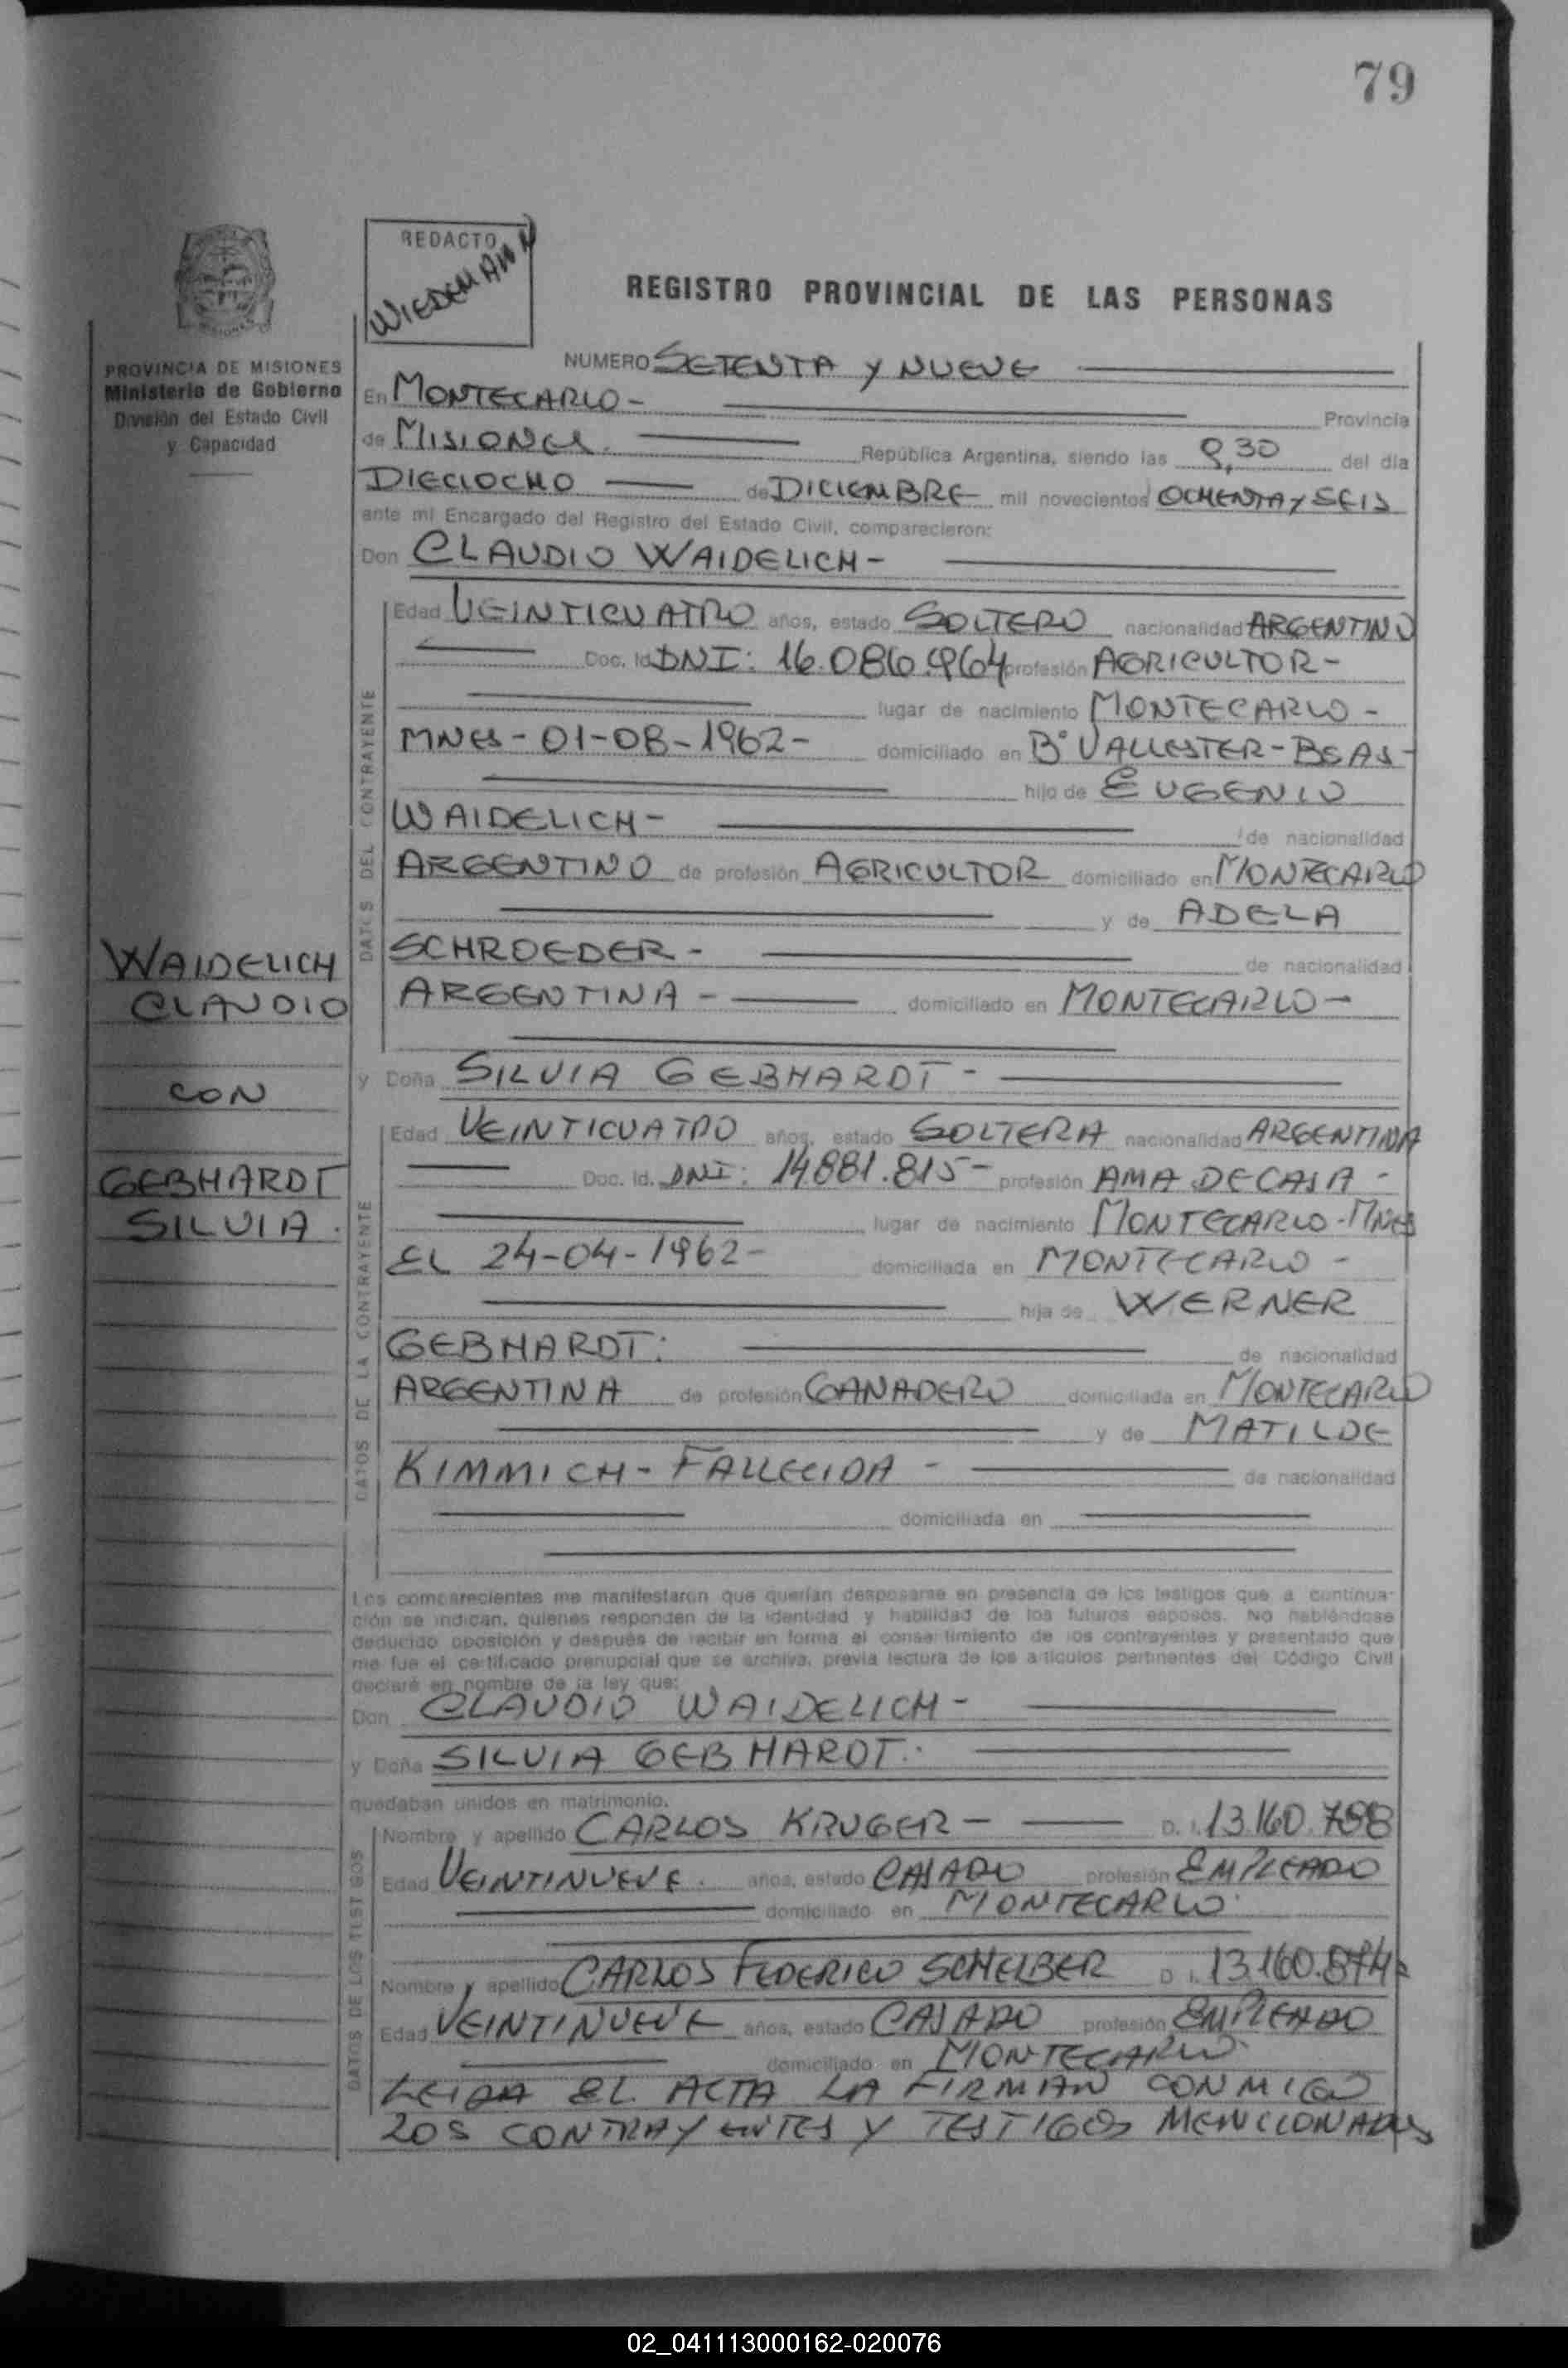 79
REDACTO
WIEDEMANN
REGISTRO PROVINCIAL DE LAS PERSONAS
PROVINCIA DE MISIONES
Ministerio de Gobierno
División del Estado Civil
y Capacidad
NUMERO SETENTA Y NUEVE
En MONTECARLO - Provincia
de MISIONES. República Argentina, siendo las 9,30 del día
DIECIOCHO de DICIEMBRE mil novecientos OCHENTA Y SEIS
ante mí Encargado del Registro del Estado Civil, comparecieron:
Don CLAUDIO WAIDELICH -
DATOS DEL CONTRAYENTE
Edad VEINTICUATRO años, estado SOLTERO nacionalidad ARGENTINO
Doc. Id. DNI: 16.086.964 profesión AGRICULTOR -
lugar de nacimiento MONTECARLO -
MNES - 01-08-1962 - domiciliado en Bº VALLESTER - BS AS -
hijo de EUGENIO
WAIDELICH - de nacionalidad
ARGENTINO de profesión AGRICULTOR domiciliado en MONTECARLO
y de ADELA
SCHROEDER - de nacionalidad
ARGENTINA - domiciliado en MONTECARLO -
WAIDELICH
CLAUDIO
CON
GEBHARDT
SILVIA.
y Doña SILVIA GEBHARDT -
DATOS DE LA CONTRAYENTE
Edad VEINTICUATRO años, estado SOLTERA nacionalidad ARGENTINA
Doc. Id. DNI: 14.881.815 - profesión AMA DE CASA -
lugar de nacimiento MONTECARLO - MNES
EL 24-04-1962 - domiciliada en MONTECARLO -
hija de WERNER
GEBHARDT: de nacionalidad
ARGENTINA de profesión GANADERO domiciliada en MONTECARLO
y de MATILDE
KIMMICH - FALLECIDA - de nacionalidad
domiciliada en
Los comparecientes me manifestaron que querían desposarse en presencia de los testigos que a continua-
ción se indican, quienes responden de la identidad y habilidad de los futuros esposos. No habiéndose
deducido oposición y después de recibir en forma el consentimiento de los contrayentes y presentado que
me fue el certificado prenupcial que se archiva, previa lectura de los artículos pertinentes del Código Civil
declaré en nombre de la ley que:
Don CLAUDIO WAIDELICH -
y Doña SILVIA GEBHARDT.
quedaban unidos en matrimonio.
DATOS DE LOS TESTIGOS
Nombre y apellido CARLOS KRUGER - D. I. 13.160.788
Edad VEINTINUEVE. años, estado CASADO profesión EMPLEADO
domiciliado en MONTECARLO.
Nombre y apellido CARLOS FEDERICO SCHELBER D. I. 13.160.874
Edad VEINTINUEVE años, estado CASADO profesión EMPLEADO
domiciliado en MONTECARLO.
LEIDA EL ACTA LA FIRMAN CONMIGO
LOS CONTRAYENTES Y TESTIGOS MENCIONADOS
02_041113000162-020076